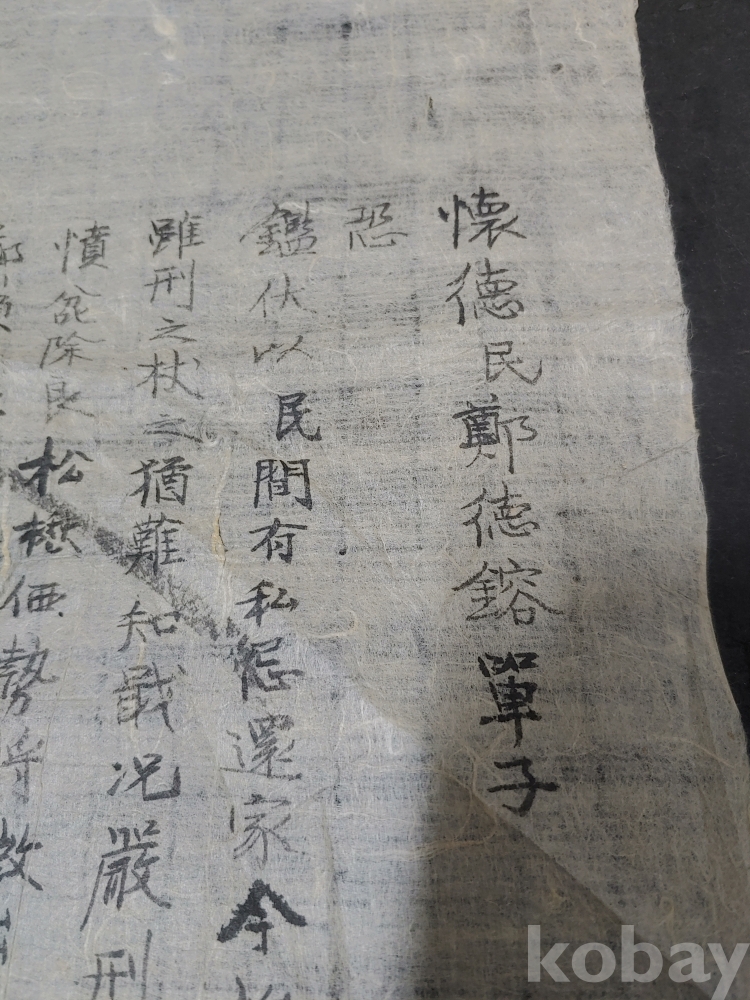 懐德民鄭德鎔單子
恐
鑑伏以民間有私怨還家今
雖刑之杖之猶難知戢况嚴刑
憤忿除良松楸価勢將
kobay